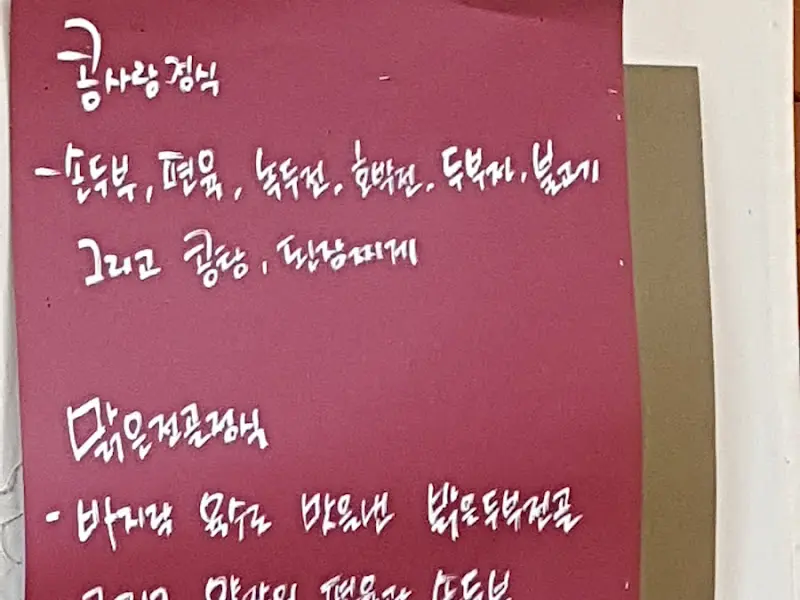 콩사랑정식
- 손두부, 편육, 녹두전, 호박전, 두부자, 불고기
그리고 콩탕, 된장찌게
맑은전골정식
- 바지락 육수로 맛을낸 맑은두부전골
그리고 약간의 편육과 손두부